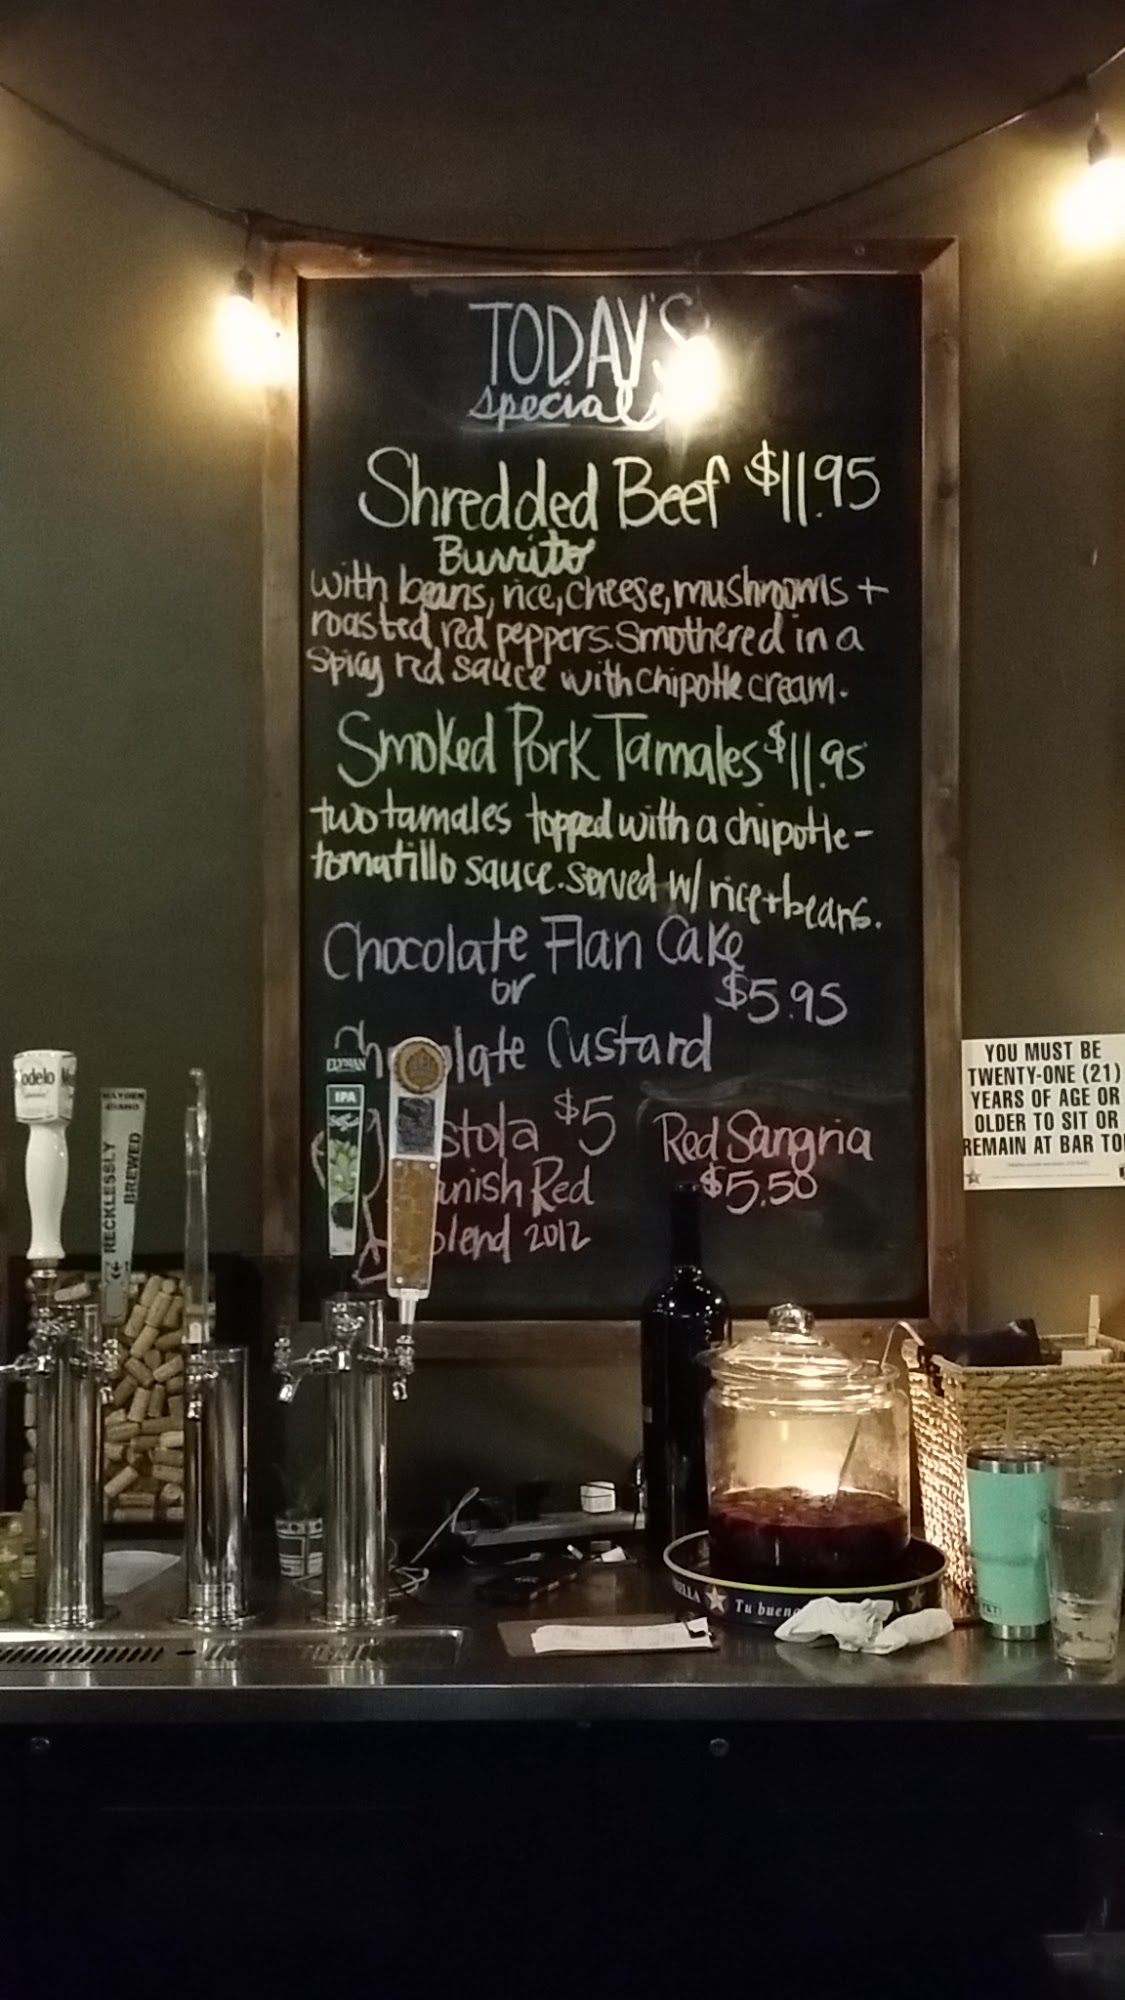 TODAY'S
specials
Shredded Beef $11.95
Burrito
with beans, rice, cheese, mushrooms +
roasted red peppers. Smothered in a
spicy red sauce with chipotle cream.
Smoked Pork Tamales $11.95
two tamales topped with a chipotle-
tomatillo sauce. served w/ rice + beans.
Chocolate Flan Cake
or
$5.95
Custard
$5
Red Sangria
Red
$5.50
2012
ELYSIAN
IPA
HAYDEN
IDAHO
RECKLESSLY
BREWED
YOU MUST BE
TWENTY-ONE (21)
YEARS OF AGE OR
OLDER TO SIT OR
REMAIN AT BAR
Tu